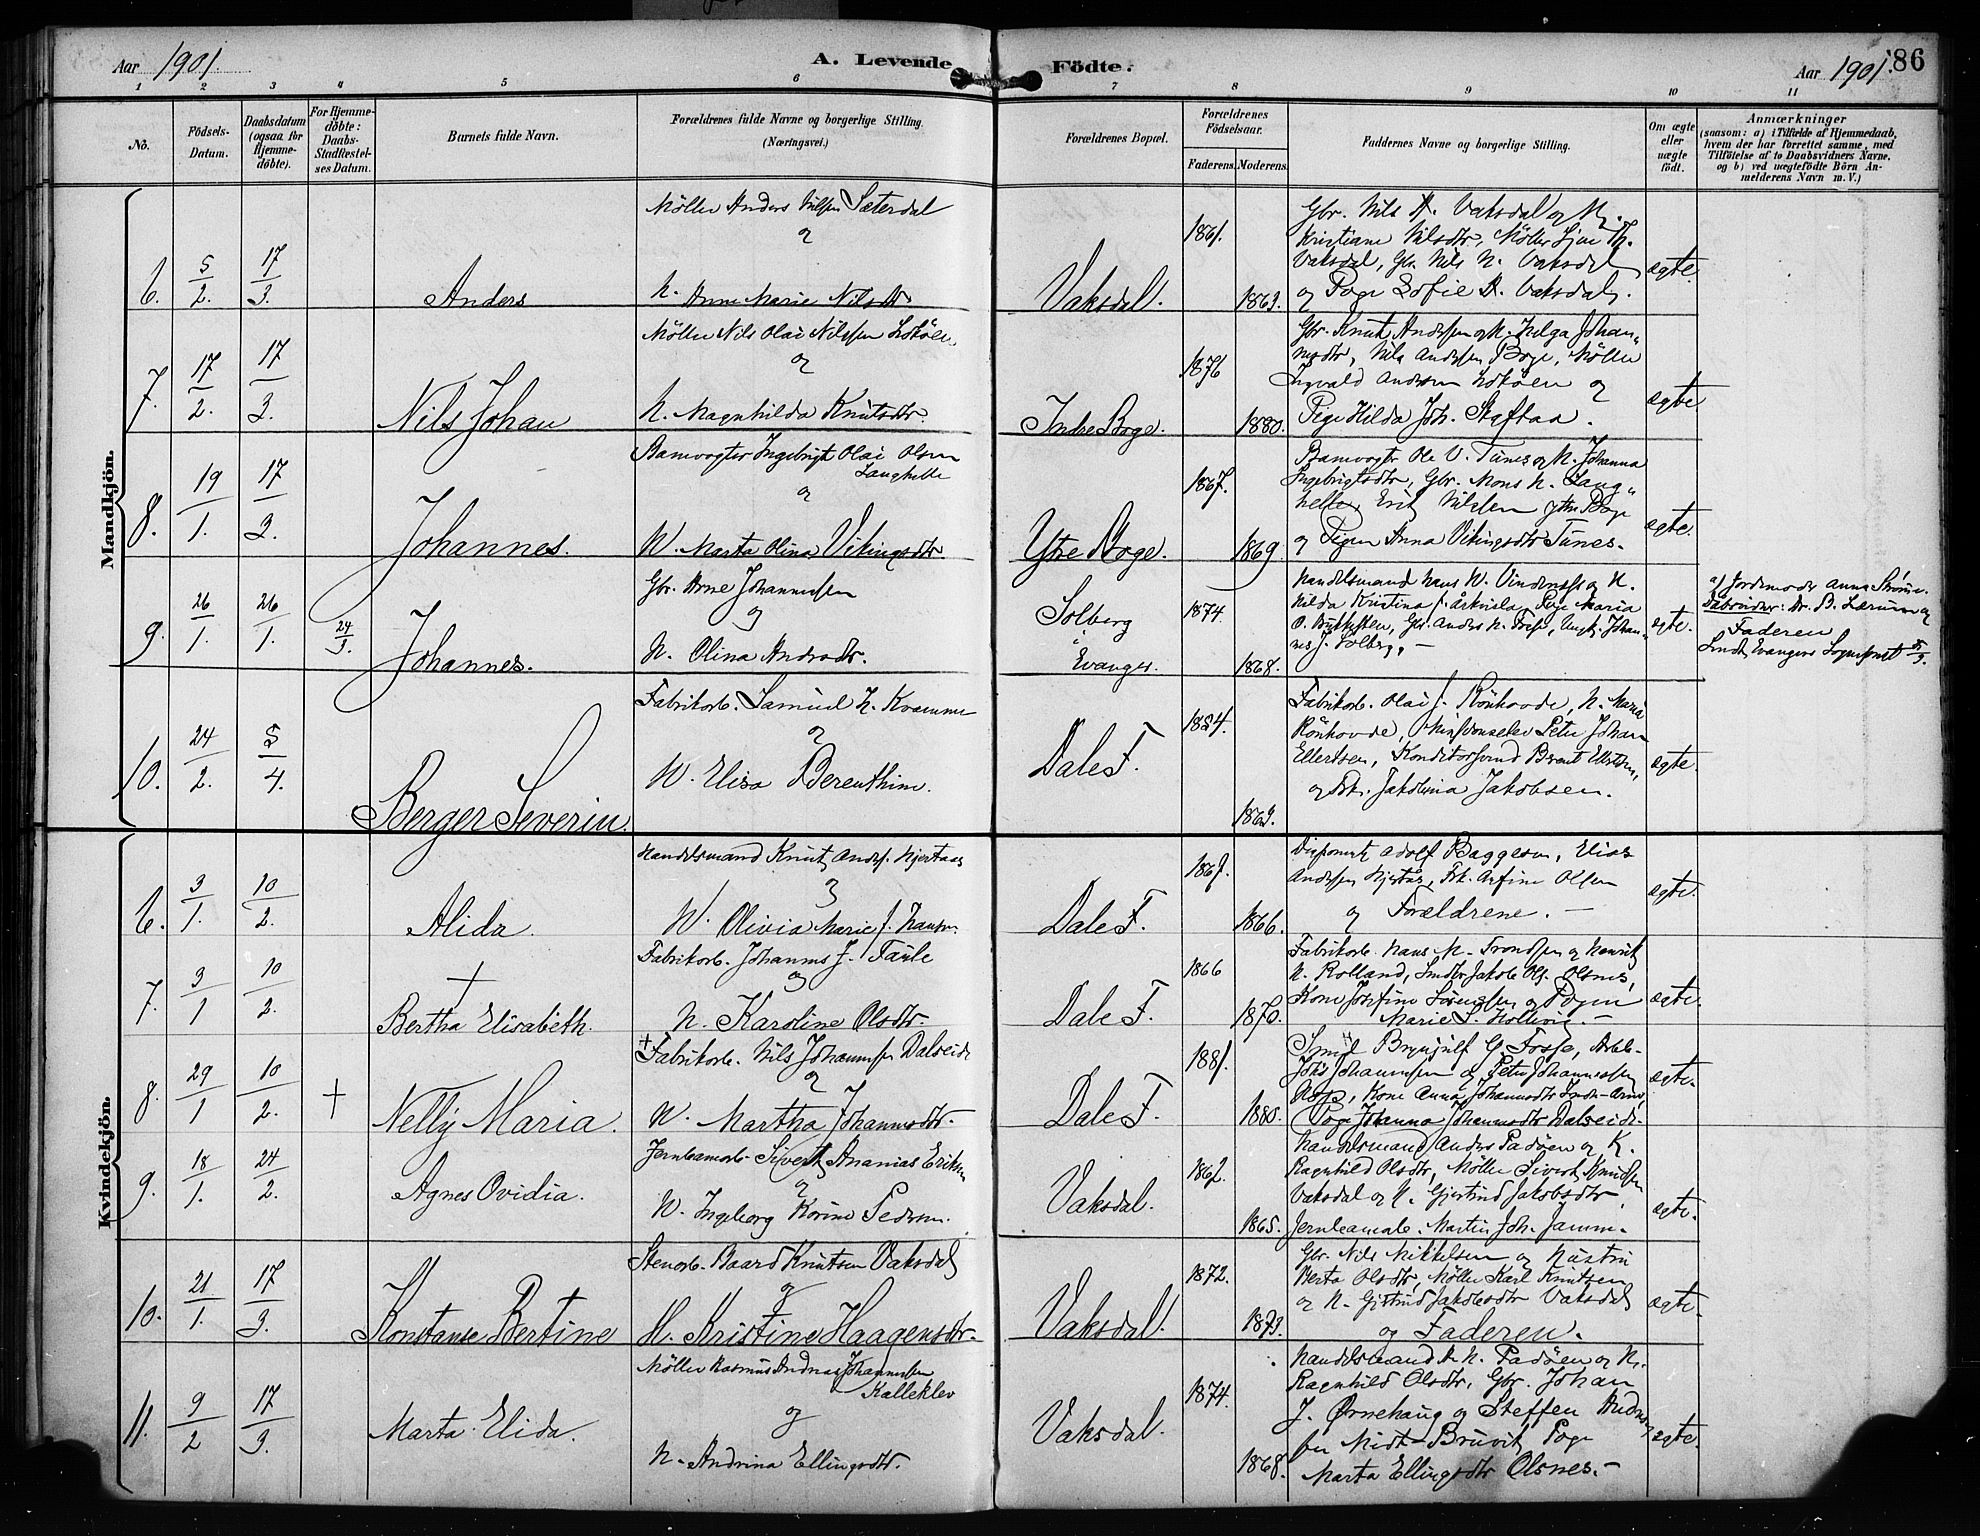 Aar 1901. A. Levende Födte. Aar 1901. 86
1 2 3 4 5 6 7 8 9 10 11
No.
Födsels-
Datum.
Daabsdatum
(ogsaa for
Hjemme-
döbte).
For Hjemme-
döbte:
Daabs-
Stadfæstel-
ses Datum.
Barnets fulde Navn.
Forældrenes fulde Navne og borgerlige Stilling.
(Næringsvei.)
Forældrenes Bopæl.
Forældrenes
Födselsaar.
Faderens. Moderens.
Faddernes Navne og borgerlige Stilling.
Om ægte
eller
uægte
födt.
Anmærkninger
(saasom: a) i Tilfælde af Hjemmedaab,
hvem der har forrettet samme, med
Tilföielse af to Daabsvidners Navne,
og b) ved uægtefödte Börn An-
melderens Navn m. V.)
Mandkjön.
6. 5/2. 17/3. Anders
Möller Anders Nilsen Sæterdal
og
Anne Marie Nilsdtr
Vaksdal. 1861. 1863.
Gbr. Nils Vaksdal og
Kristiane Nilsdtr, Möller
Vaksdal, Gbr. Nils N. Vaksdal
og Pige Sofie Vaksdal.
ægte.
7. 17/2. 17/3. Nils Johan
Möller Nils Olai Nilssen
og
Magnhilda Knutsdtr.
Indre Boge. 1876 1880.
Gbr. Knut Anderssen Helga Johan-
nesdtr, Nils Anderssen Boge, Möller
Ingvald Andersen og
Pige Hilda Joh. Skaftaa.
ægte
8. 19/1. 17/3. Johannes.
Banevogter Ingebrigt Olai Olsen
Langhelle
og
Marta Olina Vikingsdtr
Ytre Boge. 1867. 1869.
Banevogter Ole V. Tunes Johanna
Ingebrigtsdtr, Gbr. Mons N. Lang-
helle, Erik Nilssen ytre Boge
og Pigen Anna Vikingsdtr Tunes.
ægte.
9. 26/1. 26/1. 24/3. Johannes.
Gbr. Arne Johannessen
og
Olina Andersdtr.
Solberg
i
Evanger. 1874. 1868.
Handelsmand Hans
Hilda Kristina Pige Maria
Gbr. Anders N. Fosse, Johan-
nes J. Solberg. —
ægte.
a) Jordemoder Anna
Daabsvidner: Dr. B. Lærum og
Faderen
Sendt Evanger Sogneprest
10. 24/2. 5/4. Berger Severin.
Fabrikarb. Samuel Kvamme
og
Elisa Berenthine.
Dale F. 1864. 1863.
Fabrikarb. Olai J. Rönhovde, Maria
Rönhovde, Peter Johan
Ellertsen, Konditorsvend Bernt Ellertsen,
og Frk. Jakobina Jakobsen.
ægte.
Kvindekjön.
6. 3/1. 10/2. Alida.
Handelsmand Knut Anders. Hjertaas
og
Olivia Marie J. Hansen.
Dale F. 1867. 1866.
Disponent Adolf Baggesen, Elias
Anderssen Hjertås, Frk. Olsen
og Forældrene. —
ægte.
7. 3/1 10/2. + Bertha Elisabeth.
Fabrikarb. Johannes J.
og
Karoline Olsdtr.
Dale F. 1866 1870.
Fabrikarb. Hans Trondsen og Henrik
Rolland, Jakob Ols. Olsnes,
Kone Josefine og Pigen
Marie S. —
ægte.
8. 29/1 10/2. + Nelly Maria.
+ Fabrikarb. Nils Johannessen Dalseide
og
Martha Johannesdtr.
Dale F. 1881. 1880.
Smed Brynjulf G Fosse, Arbb.
Johs Johannessen og Peter Johannessen
Kone Anna Johannesdtr
Pige Johanna Johannesdtr Dalseide.
ægte.
9. 18/1. 24/2. Agnes Ovidia.
Jernbanearb. Sivert Ananias Eriksen
og
Ingeborg Korine Pedersen.
Vaksdal. 1862. 1865.
Handelsmand Anders Fadöen og K.
Ragnhild Olsdtr, Möller Sivert Knudsen
Vaksdal og Gjertrud Jakobsdtr,
Jernbanearb. Martin Joh.
ægte.
10. 21/1. 17/3. Konstanse Bertine
Stenarb. Baard Knutsen Vaksdal
og
H. Kristine Haagensdtr.
Vaksdal. 1872. 1873.
Gbr. Nils Mikkelsen og Hustru
Berta Olsdtr, Möller Karl Knutsen
og Gjertrud Jakobsdtr Vaksdal
og Faderen.
ægte.
11. 9/2 17/3. Marta Elida.
Möller Rasmus Andreas Johannessen
Kalleklev
og
Andrina Ellingsdtr.
Vaksdal. 1874. 1868.
Handelsmand Fadöen og
Ragnhild Olsdtr, Gbr. Johan
J. Ørnehaug og Steffen
Midt-Bruvik, Pige
Marta Ellingsdtr Olsnes. —
ægte.